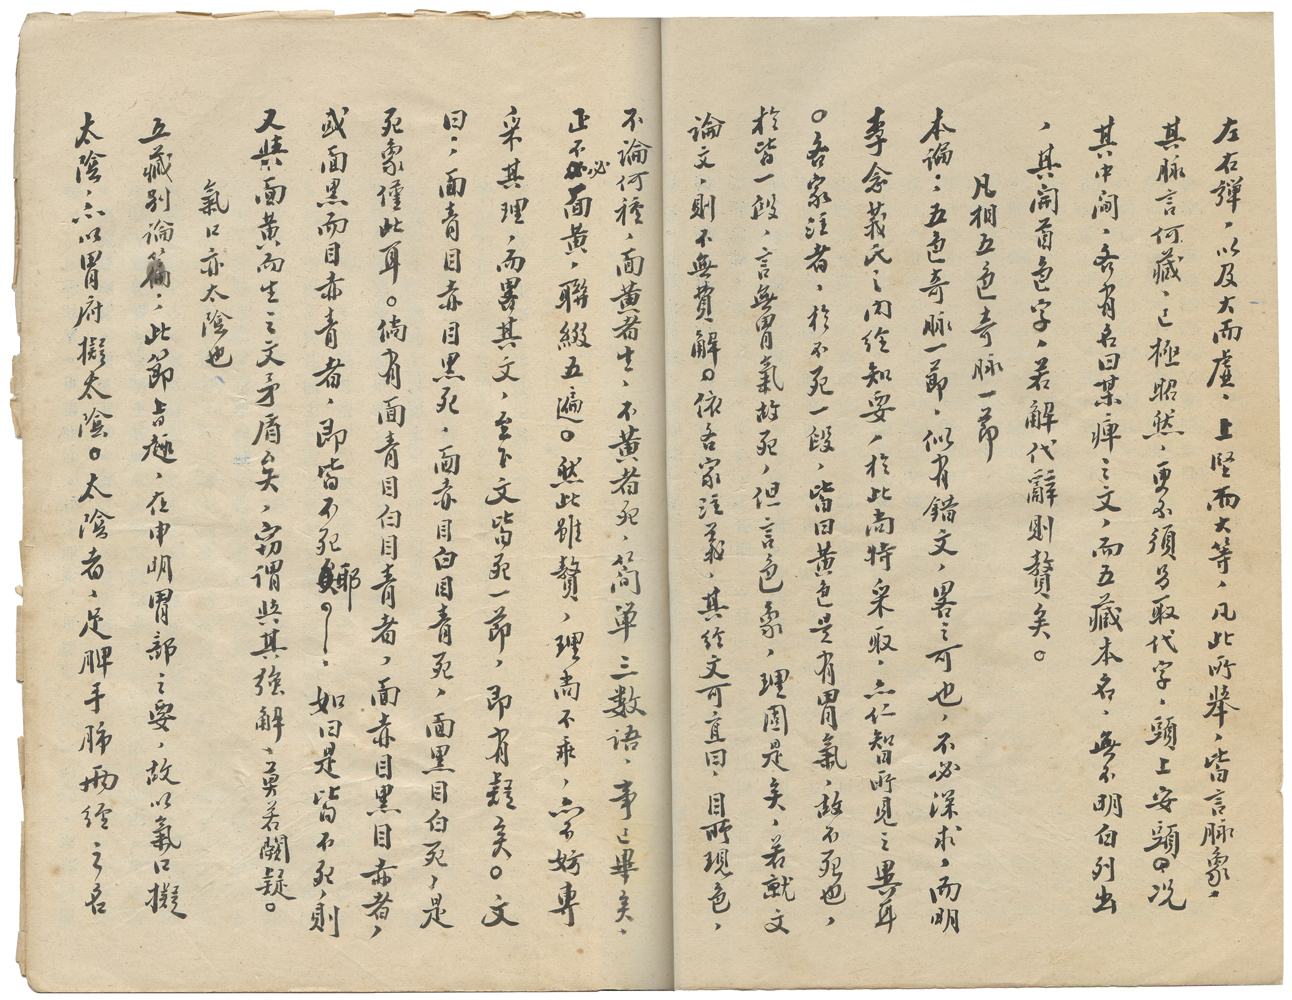 左右彈，以及大而虛，上堅而大等，凡此所舉，皆言脈象，
其脈言何藏，已極昭然，更不須另取代字，頭上安頭。况
其中間，各有名曰某痺之文，而五藏本名，無不明白列出
，其開首色字，若解代辭則贅矣。
凡相五色奇脈一節
本論：五色奇脈一節，似有錯文，畧之可也，不必深求，而明
李念莪氏之內經知要，於此尚特采取，亦仁智所見之異耳
。各家注者，於不死一段，皆曰黃色是有胃氣，故不死也，
於皆一段，言無胃氣故死，但言色象，理固是矣，若就文
論文，則不無費解。依各家注義，其經文可直曰，目所現色，
不論何種，面黃者生，不黃者死，簡單三数語，事已畢矣，
正不必面黃，聯綴五遍。然此雖贅，理尚不乖，亦不妨專
采其理，而畧其文，至下文皆死一節，即有疑矣。文
曰：面青目赤目黑死，面赤目白目青死，面黑目白死，是
死象僅此耳。倘有面青目白目青者，面赤目黑目赤者，
或面黑而目赤青者，即皆不死耶。如曰是皆不死，則
又與面黃而生之文矛盾矣，窃謂與其強解，莫若闕疑。
氣口亦太陰也
五藏別論篇，此節旨趣，在申明胃部之要，故以氣口擬
太陰，亦以胃府擬太陰。太陰者，足脾手肺兩經之名